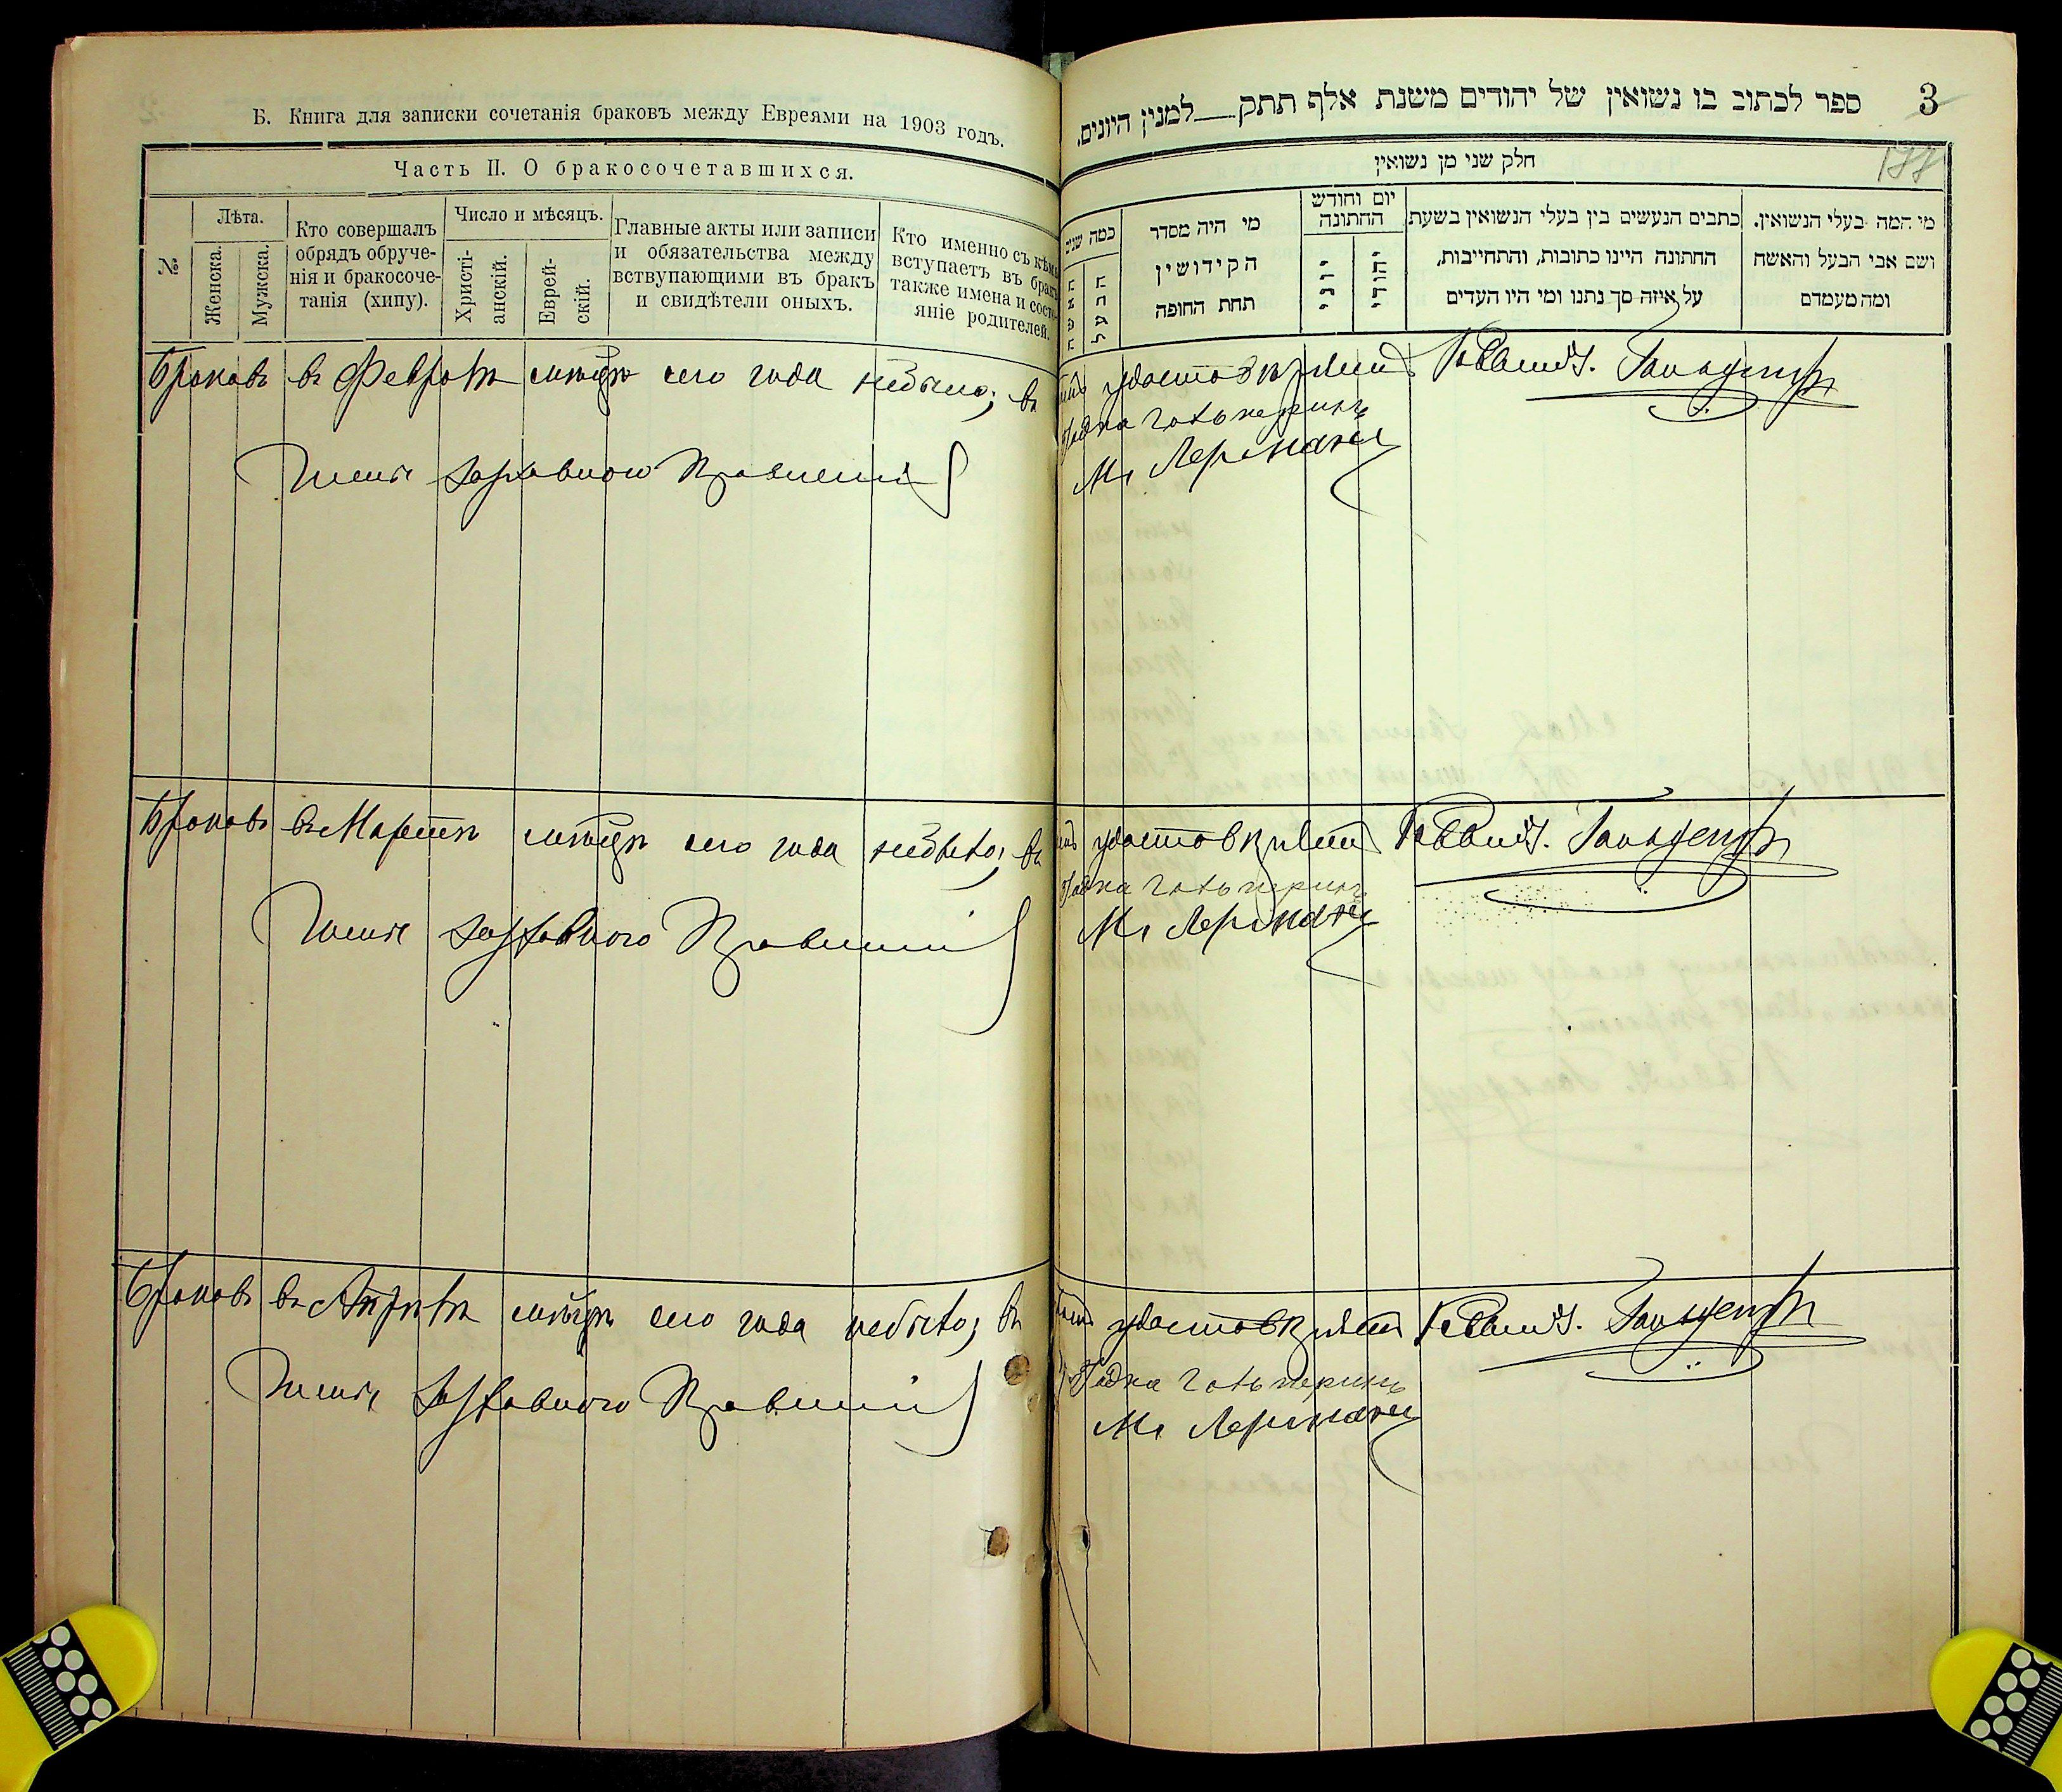 Б. Книга для записки сочетанія браковъ между Евреями на 1903 годъ.
Часть II. О бракосочетавшихся.
№
Лѣта.
Женска.
Мужска.
Кто совершалъ
обрядъ обруче-
нія и бракосоче-
танія (хипу).
Число и мѣсяцъ.
Христі-
анскій.
Еврей-
скій.
Главные акты или записи
и обязательства между
вступающими въ бракъ
и свидѣтели оныхъ.
Кто именно съ кѣмъ
вступаетъ въ бракъ
также имена и состо-
яніе родителей.
ספר לכתוב בו נשואין של יהודים משנת אלף תתק למנין היונים.
3
188
חלק שני מן נשואין
כמה שנים
האשה
הבעל
מי היה מסדר
הקידושין
תחת החופה
יום וחודש
החתונה
יוני
יהודי
כתבים הנעשים בין בעלי הנשואין בשעת
החתונה היינו כתובות, והתחייבות,
על איזה סך נתנו ומי היו העדים
מי המה בעלי הנשואין.
ושם אבי הבעל והאשה
ומה מעמדם
Браковъ въ Февралѣ мѣсяцѣ сего года небыло; въ чемъ удостовѣряемъ Раввинъ
Члены Духовного Правленія
Браковъ въ Мартѣ мѣсяцѣ сего года небыло; въ чемъ удостовѣряемъ Раввинъ
Члены Духовного Правленія
Браковъ въ Апрѣлѣ мѣсяцѣ сего года небыло; въ чемъ удостовѣряемъ Раввинъ
Члены Духовного Правленія